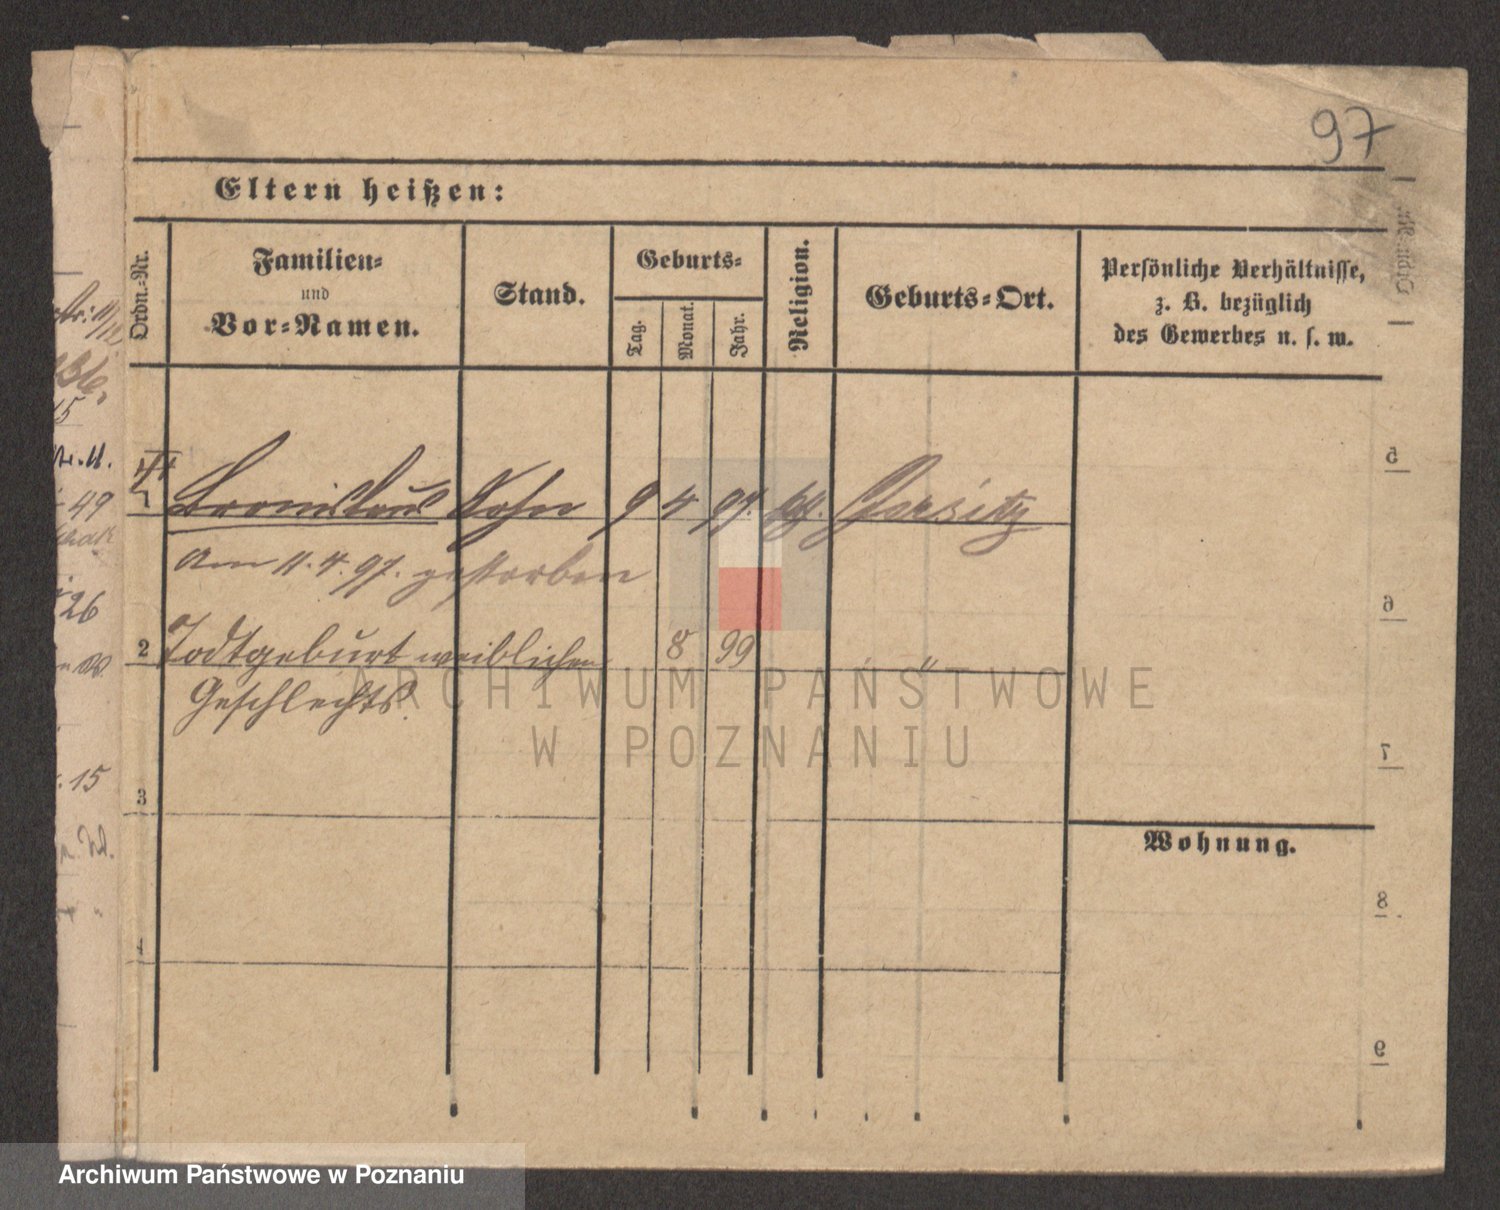 97
Eltern heißen:
Ordn.-Nr.
Familien-
und
Vor-Namen.
Stand.
Geburts-
Tag.
Monat.
Jahr.
Religion.
Geburts-Ort.
Persönliche Verhältnisse,
z. B. bezüglich
des Gewerbes u. s. w.
Bronislaus Sohn 9 4 97. kth. Gersitz
am 11.4.97. gestorben
2 Todtgeburt weiblichen 8 99 "
Geschlechts.
3
4
Wohnung.
5
6
7
8
9
49
26
15
ARCHIWUM PAŃSTWOWE
W POZNANIU
Archiwum Państwowe w Poznaniu